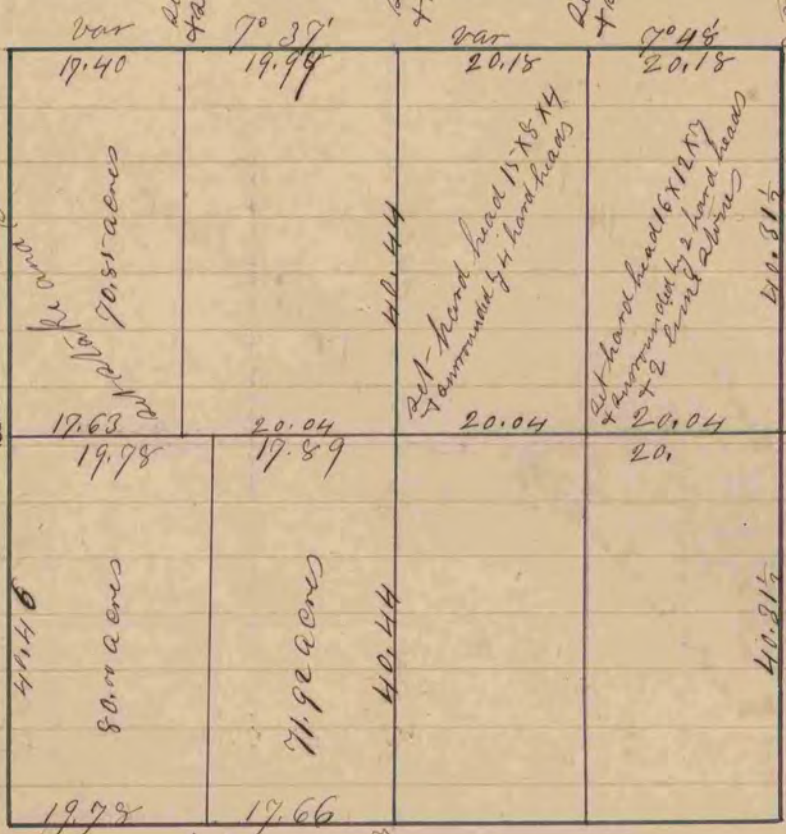 var 7° 37' var 7° 48'
17.40 19.99 20.18 20.18
set stake and
70.85 acres
40.44
set hard head 15 x 8 x 4
+ surrounded by 4 hard heads
set hard head 16 x 12 x 7
+ surrounded by 2 hard heads
+ 2 lime stones
40.31½
17.63 20.04 20.04 20.04
19.78 17.89 20.
40.46
80.00 acres
71.92 acres
40.44
40.31½
19.78 17.66